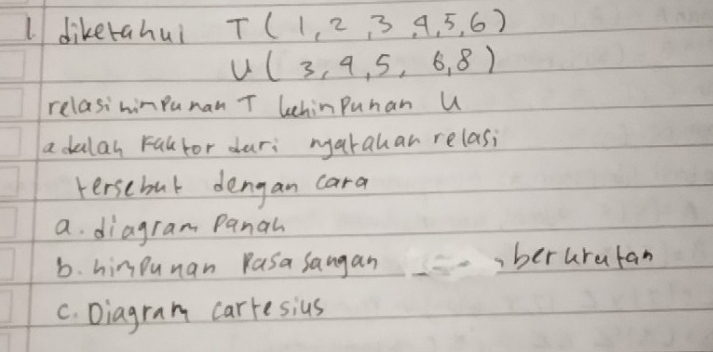 1. diketahui T ( 1, 2, 3, 4, 5, 6 )
U ( 3, 4, 5, 6, 8 )
relasi himpunan T kehimpunan U
adalah Faktor dari nyatakan relasi
tersebut dengan cara
a. diagram Panah
b. himpunan Pasasangan berurutan
c. Diagram cartesius